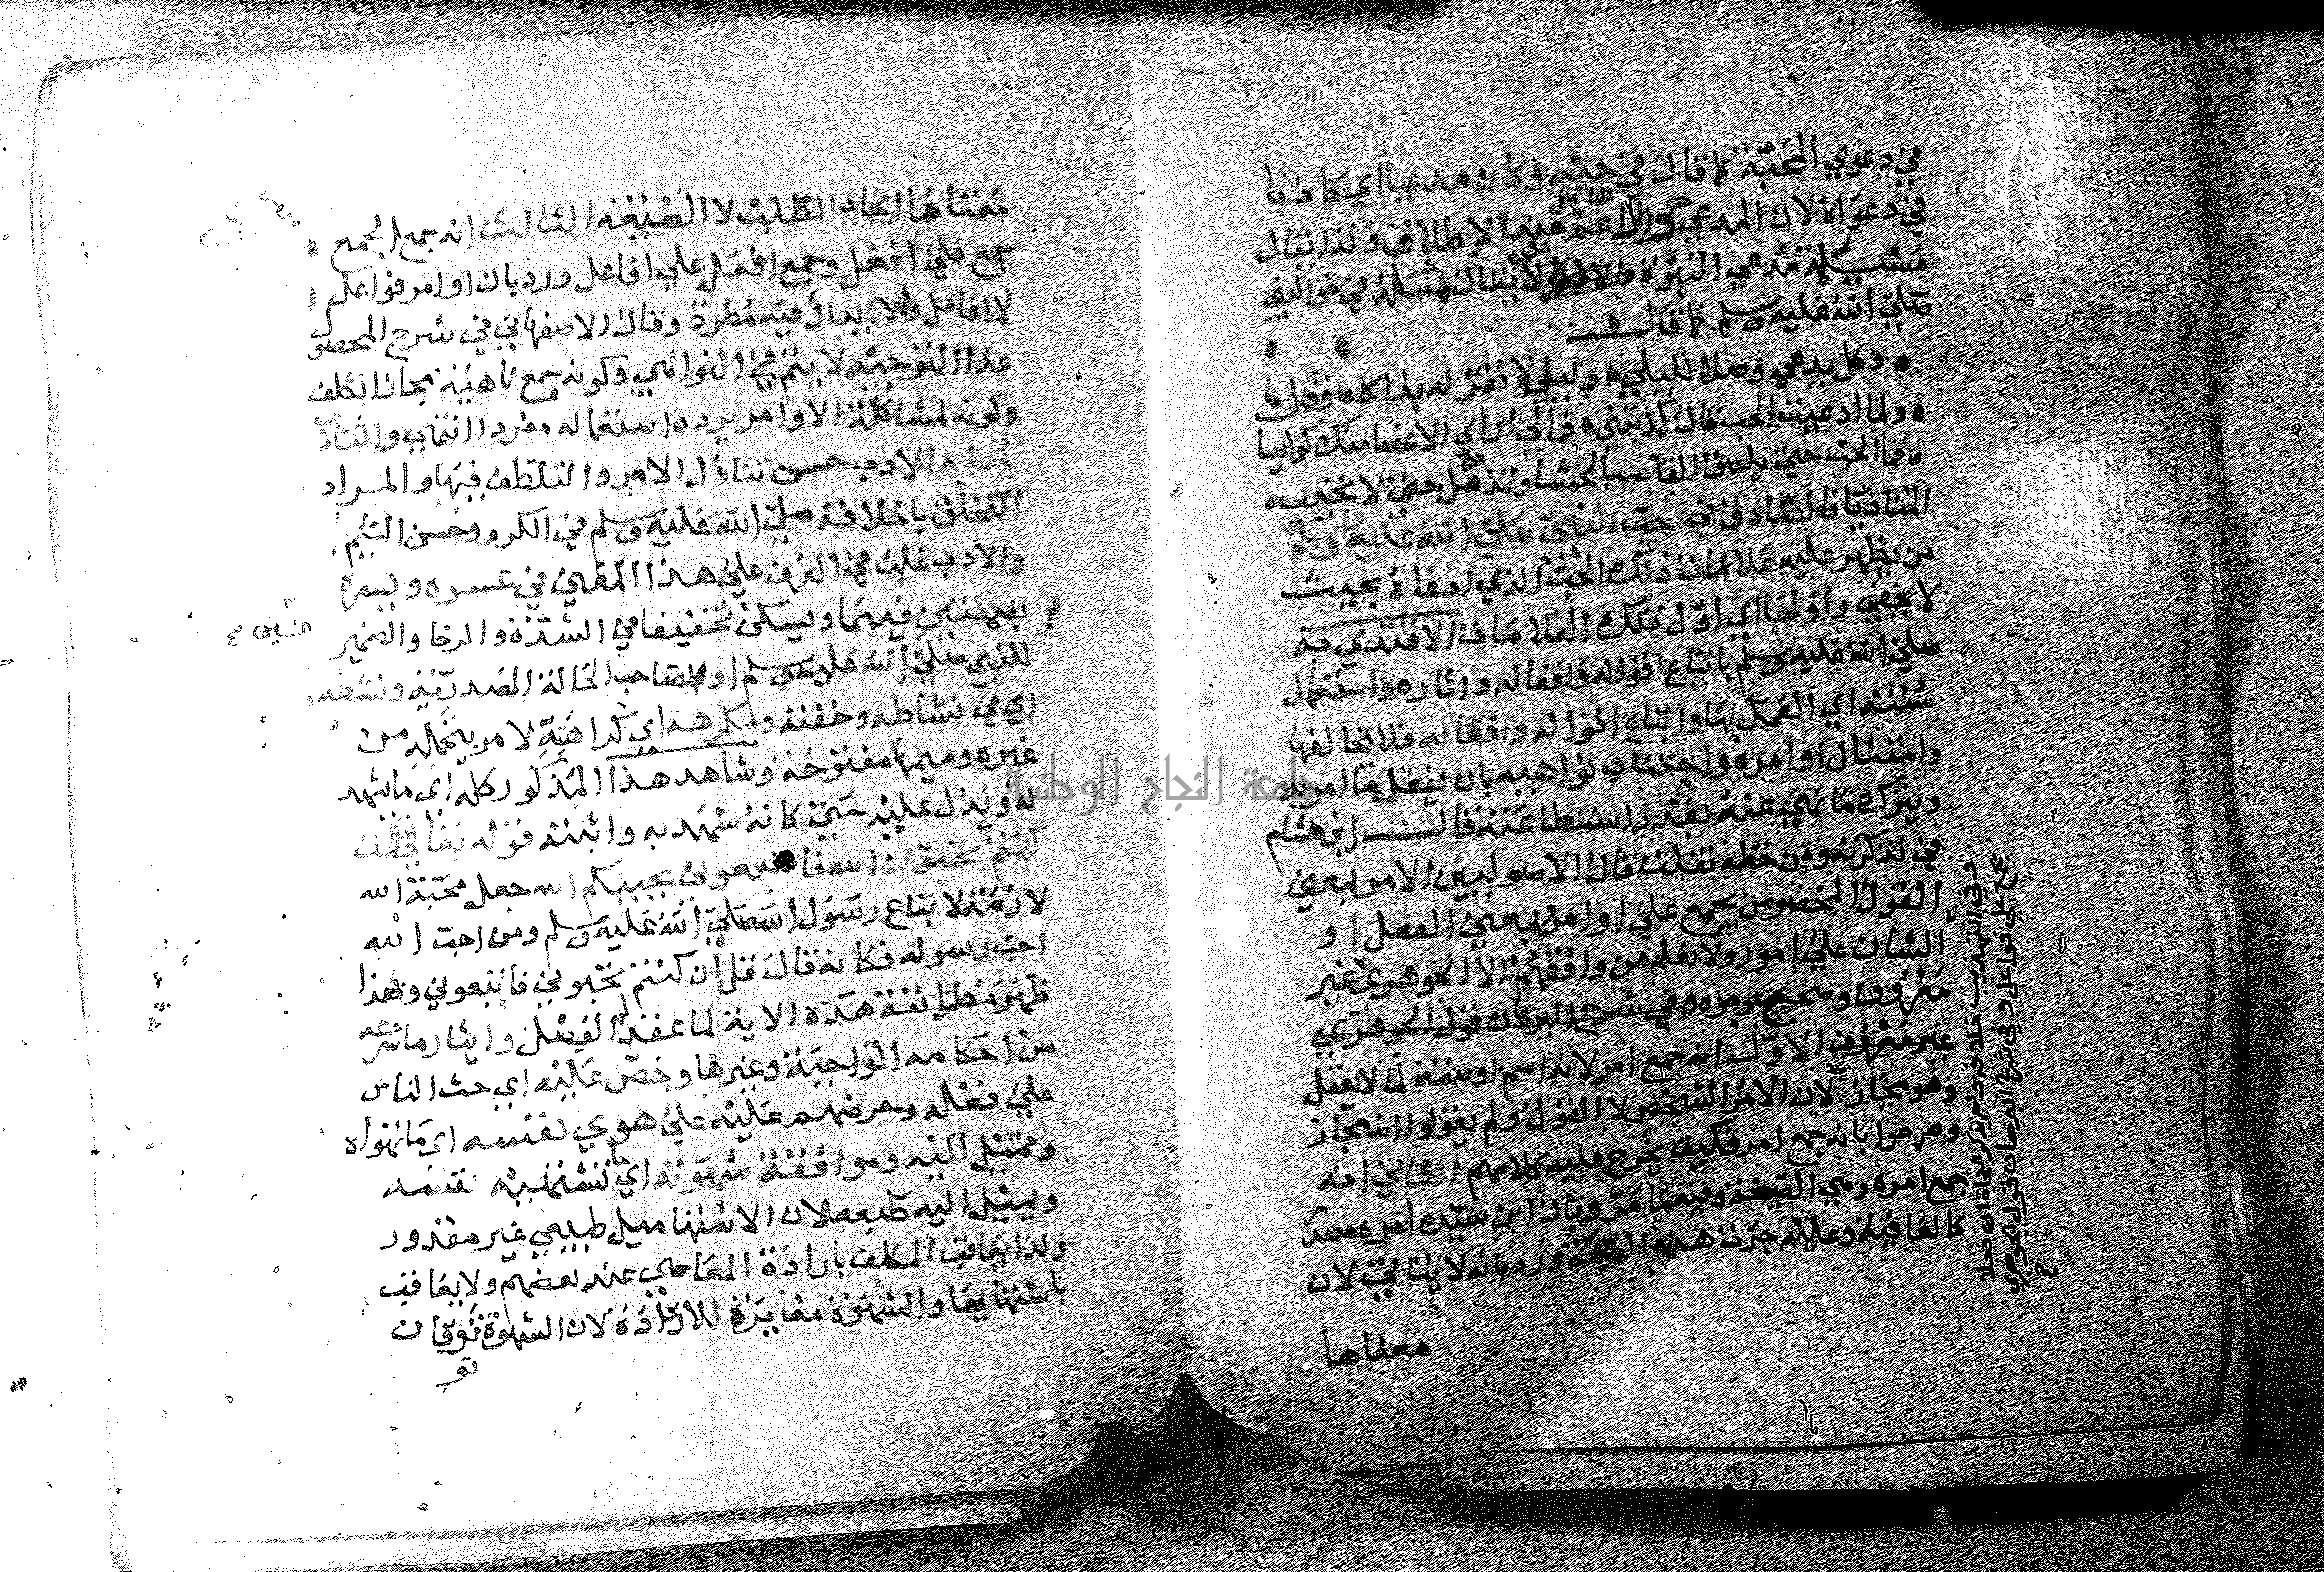 في دعوي المحبة كما قال في حبه وكان مدعيا اي كاذبا
في دعواه لان المدعي عند الاطلاق ولذا يقال
مسيلمة مدعي النبوة لا يقال مثله في خواليفه
صلي الله عليه وسلم كما قال
وكل يدعي وصلا لليلي وليلي لا تقر له بذاكا وقال
ولما ادعيت الحب قال كذبتني فمالي اراي الاعضا منك كواسيا
فما الحب حتي يلصق القلب بالحشا وتذهل حتي لا تجيب
المناديا فالصادق في حب النبي صلي الله عليه وسلم
من يظهر عليه علامات ذلك الحب الذي ادعاه بحيث
لا يخفي واولها اي اول تلك العلامات الاقتدي به
صلي الله عليه وسلم باتباع اقواله وافعاله واثاره واستعمال
سنته اي العمل بها واتباع اقواله وافعاله فلا يخالفها
وامتثال اوامره واجتناب نواهيه بان يفعل ما امر به
ويترك ما نهي عنه بقدر استطاعته قال ابن هشام
في تذكرته ومن خطه نقلت قال الاصوليين الامر بمعني
القول المخصوص يجمع علي اوامر وبمعني الفعل او
الشان علي امور ولا نعلم من وافقهم الا الجوهري غير
معروف وصحح بوجوه وفي شرح البرهان قول الجوهري
غير معروف الاول انه جمع امر لانه اسم او صفة لما لا يعقل
وهو مجاز لان الامر الشخص لا القول ولم يقولوا انه مجاز
وصرحوا بانه جمع امر فكيف يخرج عليه كلامهم الثاني انه
جمع امره وهي الصيغة وفيه ما مر وقال ابن سيده امره مصدر
كالعافية وعليه جرت هذه الصيغة ورد بانه لا يتاتي لان
معناها
وفي التهذيب خلافه ولم يذكر النحاة ان فعلا
يجمع علي فواعل وفي شرح البرهان قول الجوهري
معناها ايجاد الطلب لا الصيغة الثالث انه جمع الجمع
جمع علي افعل وجمع افعل علي افاعل ورد بان اوامر فواعل
لا افاعل والابدال فيه مطرد وقال الاصفهاني في شرح المحصول
هذا التوجيه لا يتم في النواهي وكونه جمع ناهية مجازا تكلف
وكونه لمشاكلة الاوامر يرده استعماله مفردا انتهي والتادب
بادابه الادب حسن تناول الامر والتلطف فيها والمراد
التخلق باخلاقه صلي الله عليه وسلم في الكرم وحسن الشيم
والادب غلب في العرف علي هذا المعني في عسره ويسره
بضمتين فيهما ويسكن تخفيفا في الشدة والرخا والضمير
للنبي صلي الله عليه وسلم او لصاحب الحالة المصدرية ومنشطه
اي في نشاطه وخفته ومكرهه اي كراهية لامر يتحمله من
غيره وميمها مفتوحة وشاهد هذا المذكور كله اي ما يشهد
له ويدل عليه حتي كانه شهد به واثبته قوله تعالي قل ان
كنتم تحبون الله فاتبعوني يحببكم الله جعل محبة الله
لازمة لاتباع رسول الله صلي الله عليه وسلم ومن احب الله
احب رسوله فكانه قال قل ان كنتم تحبوني فاتبعوني وبهذا
ظهر مطابقة هذه الاية لما عقد له الفصل وايثار ما شرعه
من احكامه الواجبة وغيرها وحض عليه اي حث الناس
علي فعله وحرضهم عليه علي هوي نفسه اي ما تهواه
وتميل اليه وموافقة شهوته اي ما تشتهيه نفسه
ويميل اليه طبعه لان الاشتها ميل طبيعي غير مقدور
ولذا يعاقب المكلف بارادة المعاصي عند بعضهم ولا يعاقب
باشتهايها والشهوة مغايرة للارادة لان الشهوة توقان
جامعة النجاح الوطنية